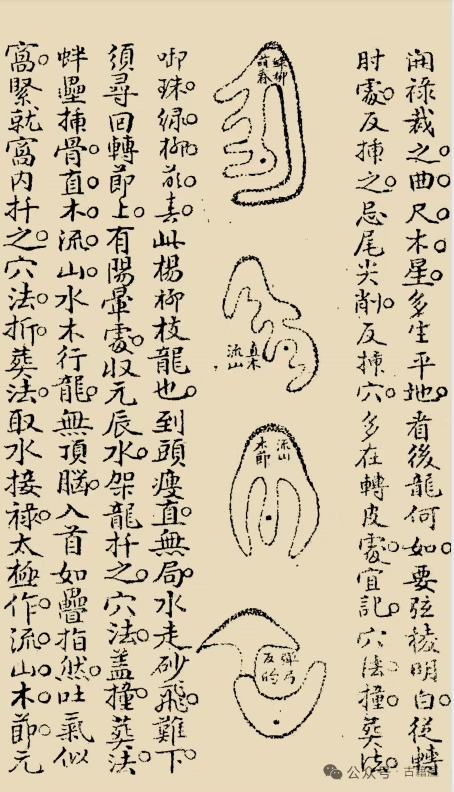 開祿裁之。曲尺木星。多生平地。者後龍何如要弦稜明白。從轉
肘處。反之。忌尾尖削。反穴。多在轉皮處。宜記。穴法撞。葬法。
綠柳
萌春
直木
流山
流山
木節
彈弓
反的
啣珠。綠柳。萌春。此楊柳枝龍也。到頭瘦直無局。水走砂飛難下
須尋回轉節上。有陽暈處。收元辰水。架龍扦之。穴法蓋撞。葬法。
蚌壘骨。直木。流山。水木行龍。無頂腦。入首如疊指然。吐氣似
窩。緊就窩內扦之。穴法折。葬法。取水接祿。太極作流山。木節。元
公众号·古籍